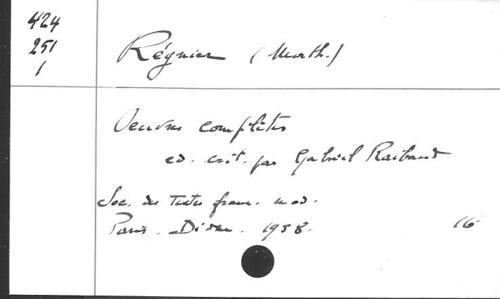 424
251
1
Régnier (Math.)
Oeuvres complètes
ed. crit. par Gabriel Raibaud
Soc. des Textes franc. mod.
Paris. Didier. 1958. 16